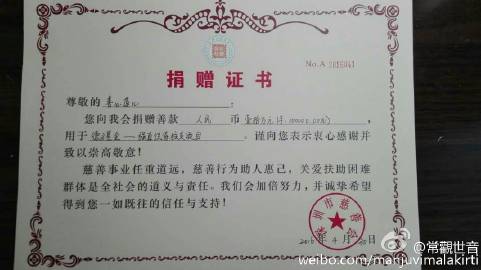 No.A 2015041
捐赠证书
尊敬的
您向我会捐赠善款 人民 币 壹拾万元
用于 。谨向您表示衷心感谢并
致以崇高敬意!
慈善事业任重道远,慈善行为助人惠己,关爱扶助困难
群体是全社会的道义与责任。我们会加倍努力,并诚挚希望
得到您一如既往的信任与支持!
深圳市慈善会
4 月 日
@常觀世音
weibo.com/manjuvimalakirti